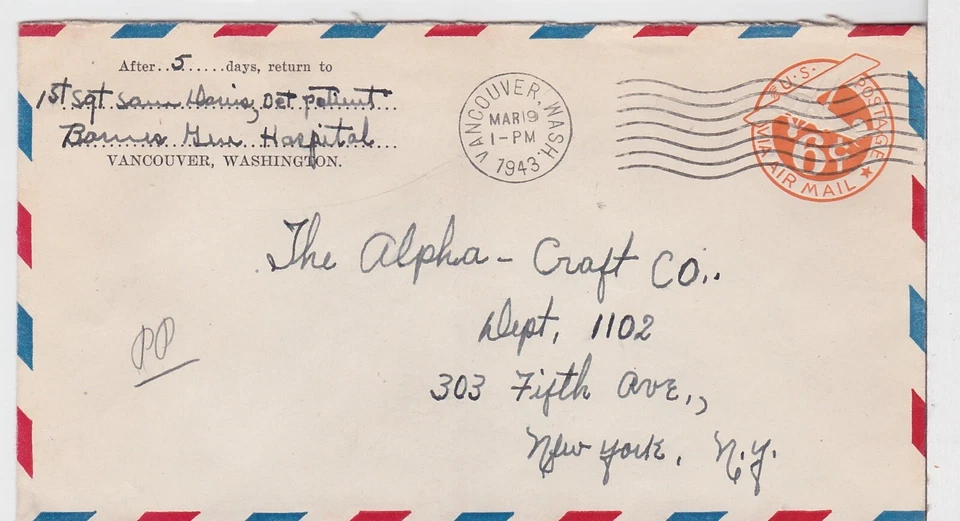 After..5.....days, return to
1st Sgt Sam Davis, Det Patient
Barnes Gen. Hospital
VANCOUVER, WASHINGTON.
VANCOUVER, WASH.
MAR 19
1-PM
1943
U.S. POSTAGE
6¢
VIA AIR MAIL
The Alpha-Craft Co..
Dept, 1102
303 Fifth Ave.,
New York, N.Y.
PP